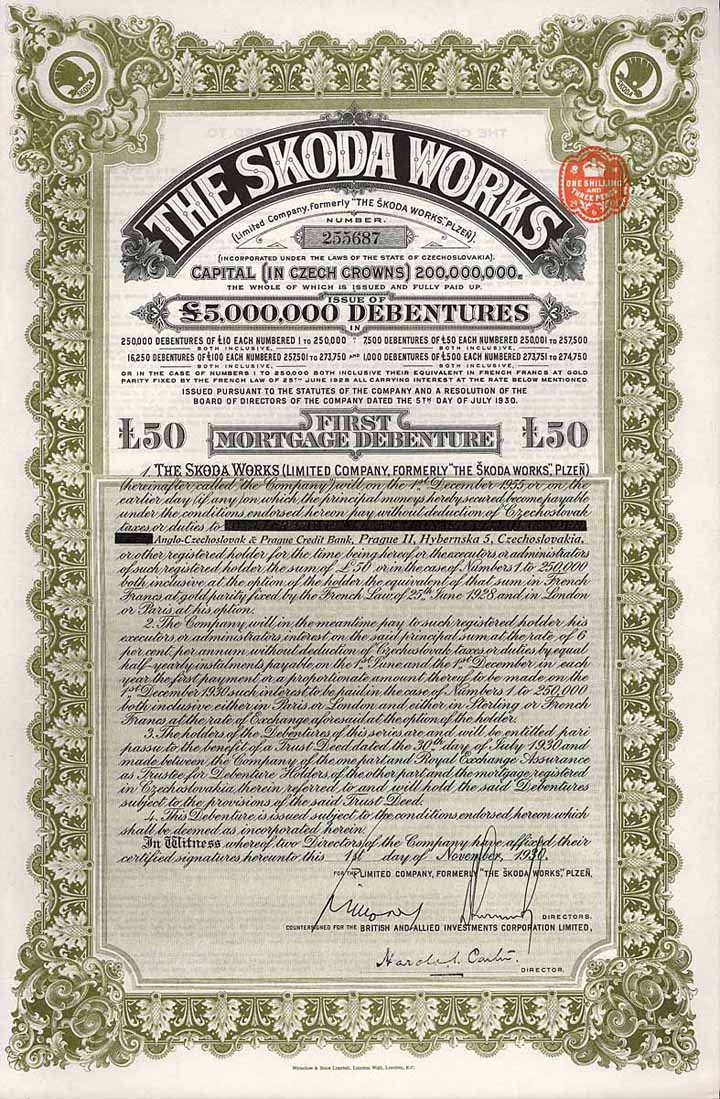 SKODA
SKODA
THE SKODA WORKS
(Limited Company, formerly "THE ŠKODA WORKS", PLZEŇ).
NUMBER.
255687
(INCORPORATED UNDER THE LAWS OF THE STATE OF CZECHOSLOVAKIA).
CAPITAL (IN CZECH CROWNS) 200,000,000.
THE WHOLE OF WHICH IS ISSUED AND FULLY PAID UP.
ONE SHILLING
AND
THREE PENCE
ISSUE OF
£5,000,000 DEBENTURES
IN
250,000 DEBENTURES OF £10 EACH NUMBERED 1 TO 250,000 7,500 DEBENTURES OF £50 EACH NUMBERED 250,001 TO 257,500
BOTH INCLUSIVE, BOTH INCLUSIVE,
16,250 DEBENTURES OF £100 EACH NUMBERED 257,501 TO 273,750 AND 1,000 DEBENTURES OF £500 EACH NUMBERED 273,751 TO 274,750
BOTH INCLUSIVE, BOTH INCLUSIVE,
OR IN THE CASE OF NUMBERS 1 TO 250,000 BOTH INCLUSIVE THEIR EQUIVALENT IN FRENCH FRANCS AT GOLD
PARITY FIXED BY THE FRENCH LAW OF 25TH JUNE 1928 ALL CARRYING INTEREST AT THE RATE BELOW MENTIONED
ISSUED PURSUANT TO THE STATUTES OF THE COMPANY AND A RESOLUTION OF THE
BOARD OF DIRECTORS OF THE COMPANY DATED THE 5TH DAY OF JULY 1930.
£50 FIRST MORTGAGE DEBENTURE £50
1. THE SKODA WORKS (LIMITED COMPANY, FORMERLY "THE ŠKODA WORKS", PLZEŇ)
(hereinafter called "the Company") will on the 1st December 1955 or on the
earlier day (if any) on which the principal moneys hereby secured become payable
under the conditions endorsed hereon pay without deduction of Czechoslovak
taxes or duties to
Anglo-Czechoslovak & Prague Credit Bank, Prague II, Hybernska 5, Czechoslovakia.
or other registered holder for the time being hereof or the executors or administrators
of such registered holder the sum of £50 or in the case of Numbers 1 to 250,000
both inclusive at the option of the holder the equivalent of that sum in French
Francs at gold parity fixed by the French Law of 25th June 1928 and in London
or Paris at his option.
2. The Company will in the meantime pay to such registered holder his
executors or administrators interest on the said principal sum at the rate of 6
per cent. per annum without deduction of Czechoslovak taxes or duties by equal
half-yearly instalments payable on the 1st June and the 1st December in each
year the first payment or a proportionate amount thereof to be made on the
1st December 1930 such interest to be paid in the case of Numbers 1 to 250,000
both inclusive either in Paris or London and either in Sterling or French
Francs at the rate of Exchange aforesaid at the option of the holder.
3. The holders of the Debentures of this series are and will be entitled pari
passu to the benefit of a Trust Deed dated the 30th day of July 1930 and
made between the Company of the one part and Royal Exchange Assurance
as Trustee for Debenture Holders of the other part and the mortgage registered
in Czechoslovakia therein referred to and will hold the said Debentures
subject to the provisions of the said Trust Deed.
4. This Debenture is issued subject to the conditions endorsed hereon which
shall be deemed as incorporated herein.
In Witness whereof two Directors of the Company have affixed their
certified signatures hereunto this 1st day of November, 1930.
FOR THE LIMITED COMPANY, FORMERLY "THE ŠKODA WORKS", PLZEŇ,
DIRECTORS.
COUNTERSIGNED FOR THE BRITISH AND ALLIED INVESTMENTS CORPORATION LIMITED,
DIRECTOR.
Waterlow & Sons Limited, London Wall, London, E.C.